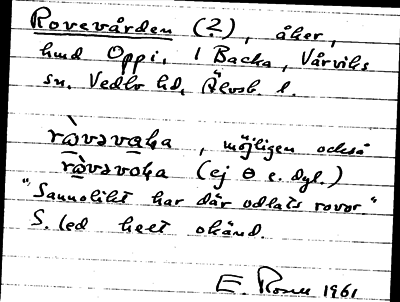 Rovevården (2), åker,
hmd Oppi, 1 Backa, Vårviks
sn. Vedbo hd, Älvsb. l.
ràvsvaka, möjligen också
ràvsvoka (ej ɵ e. dyl.)
"Sannolikt har där odlats rovor."
S. led helt okänd.
E. Rosen 1961